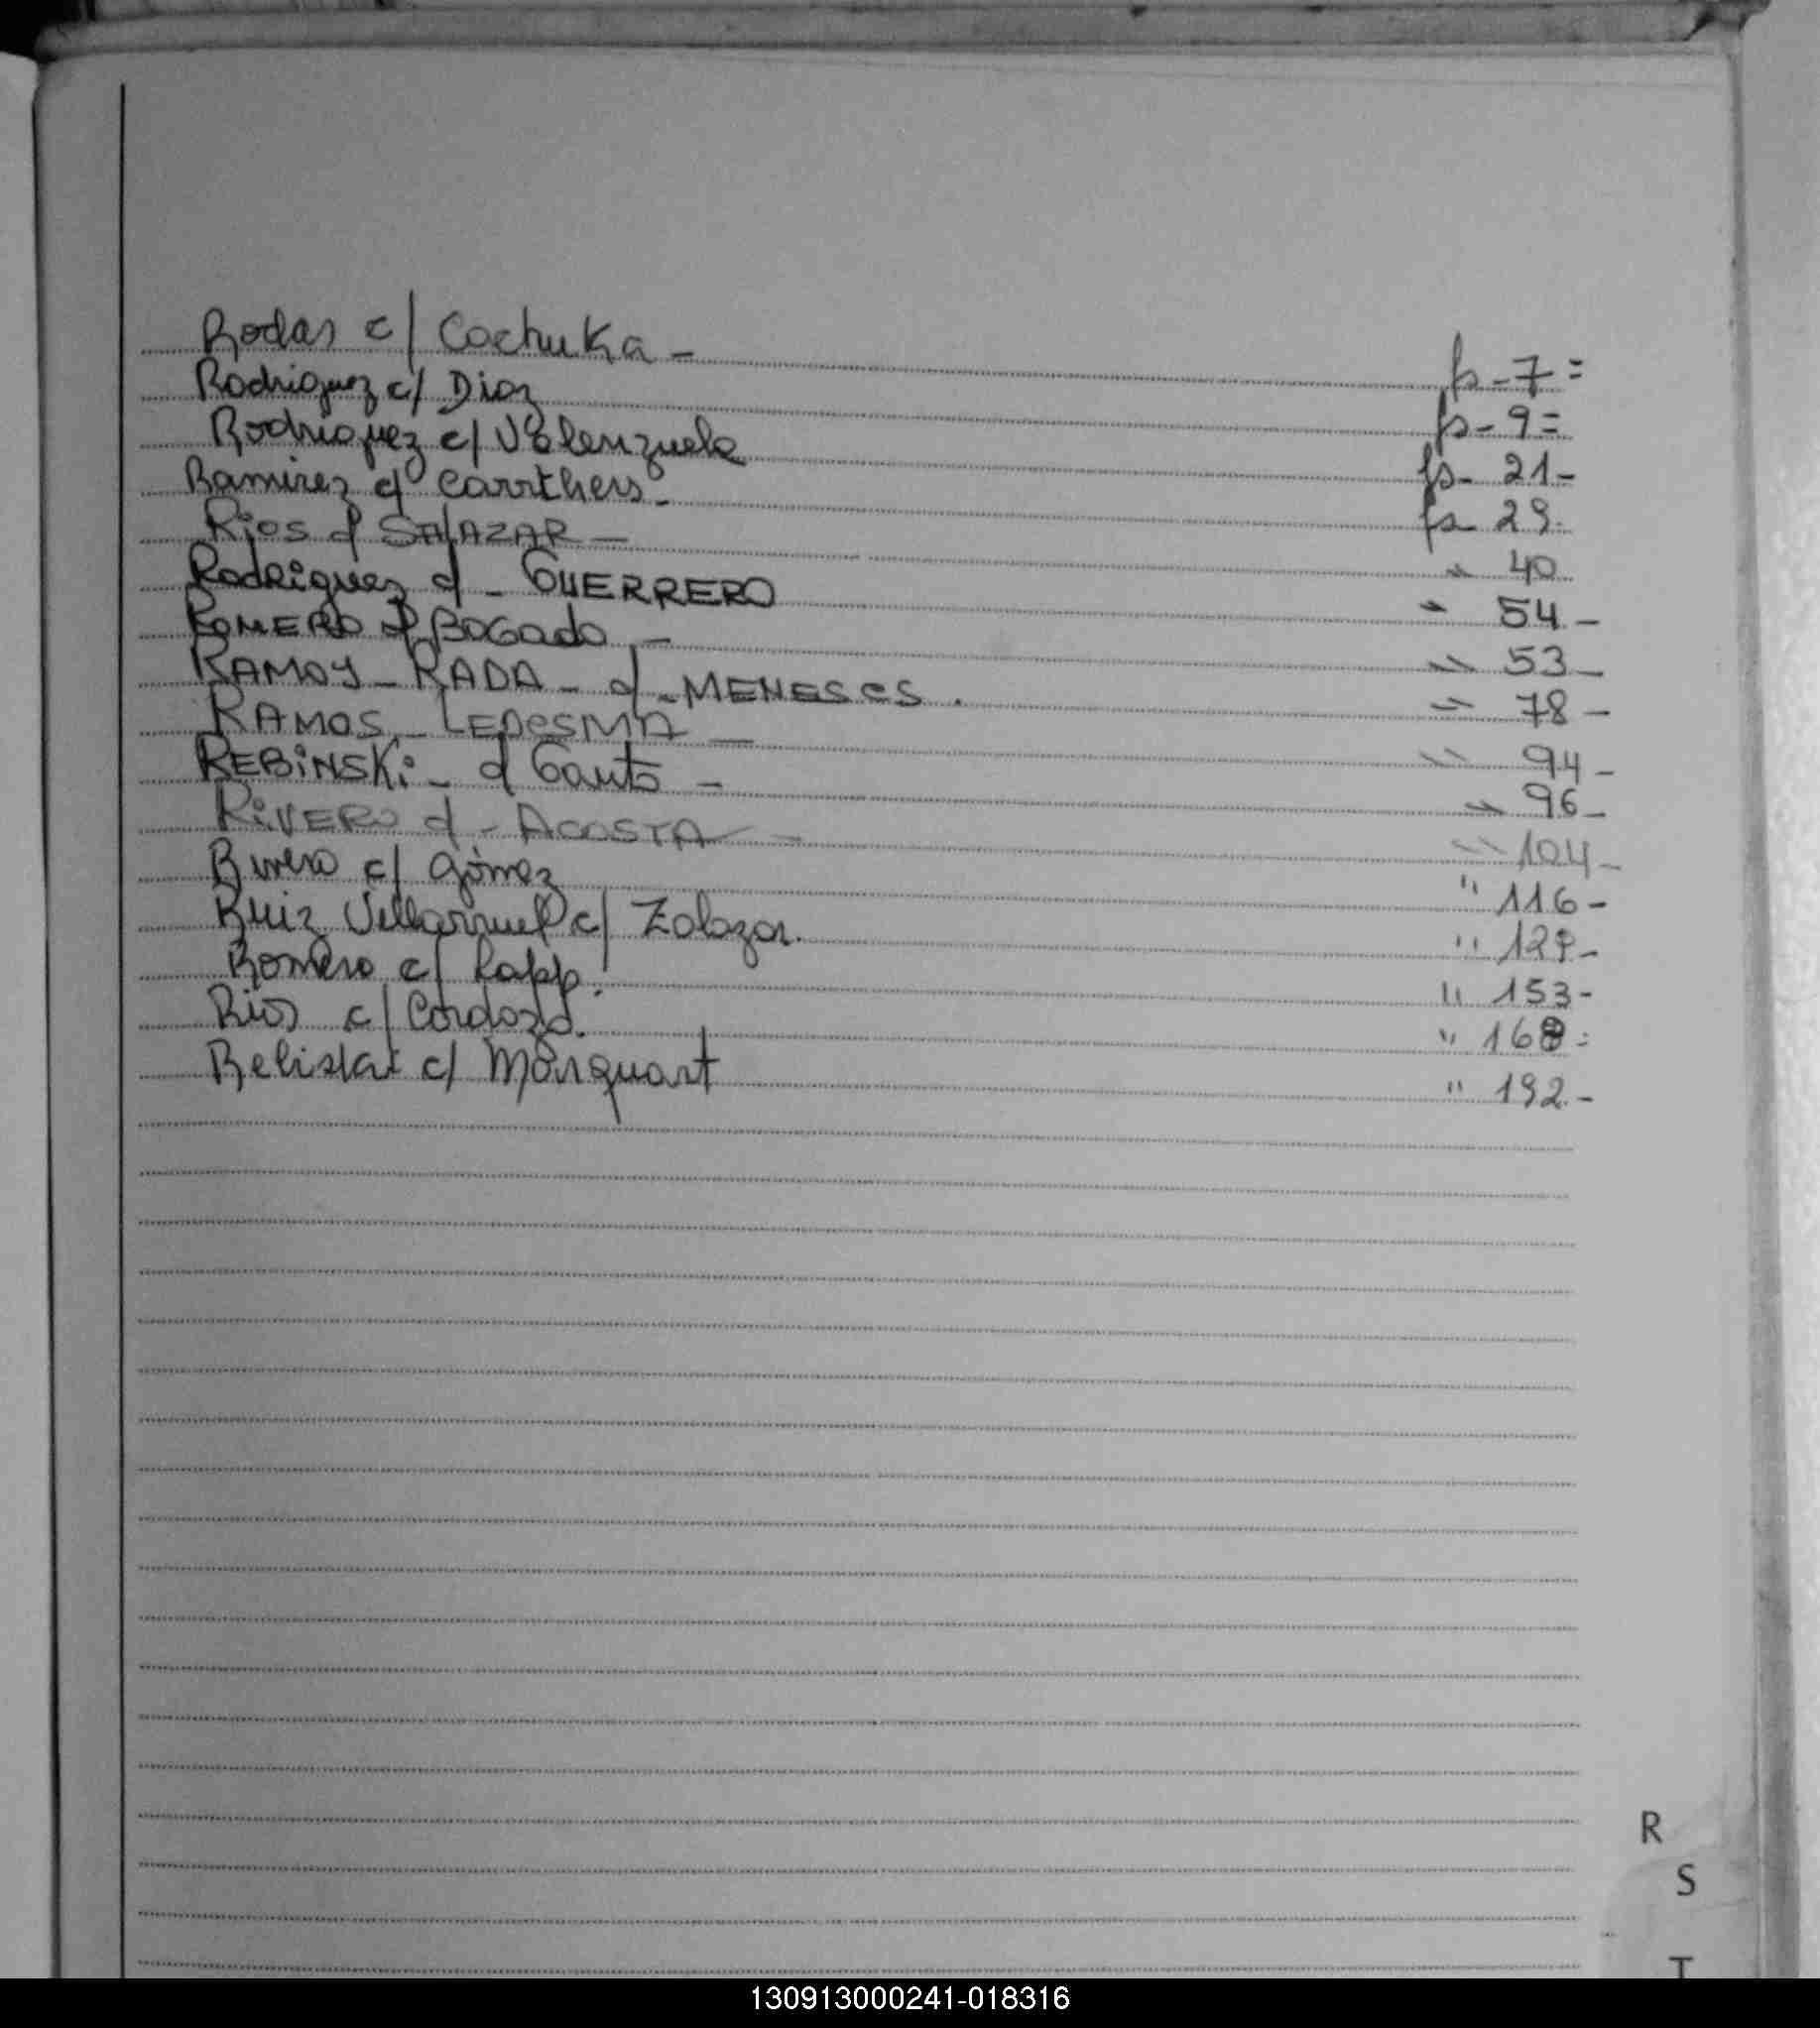 Rodas c/ Cochuka - fs - 7 =
Rodriguez c/ Diaz fs - 9 =
Rodriguez c/ Valenzuela fs - 21 -
Ramirez c/ Carrthers - fs 29.
Rios c/ SALAZAR - " 40
RodRiguez c/ - GUERRERO " 54 -
ROMERO c/ BOGado - " 53 -
RAMOS - RADA - c/ - MENESES . " 78 -
RAMOS - LEDESMA - " 94 -
REBiNSKi - c/ Cantò - " 96 -
RiVERO c/ - ACOSTA - " 104 -
Rivero c/ Gómez " 116 -
Ruiz Villarruel c/ Zalazar. " 129 -
Romero c/ Rapp. " 153 -
Rios c/ Cardozo. " 168 =
Belistar c/ Marquart " 192 -
R
S
T
130913000241-018316